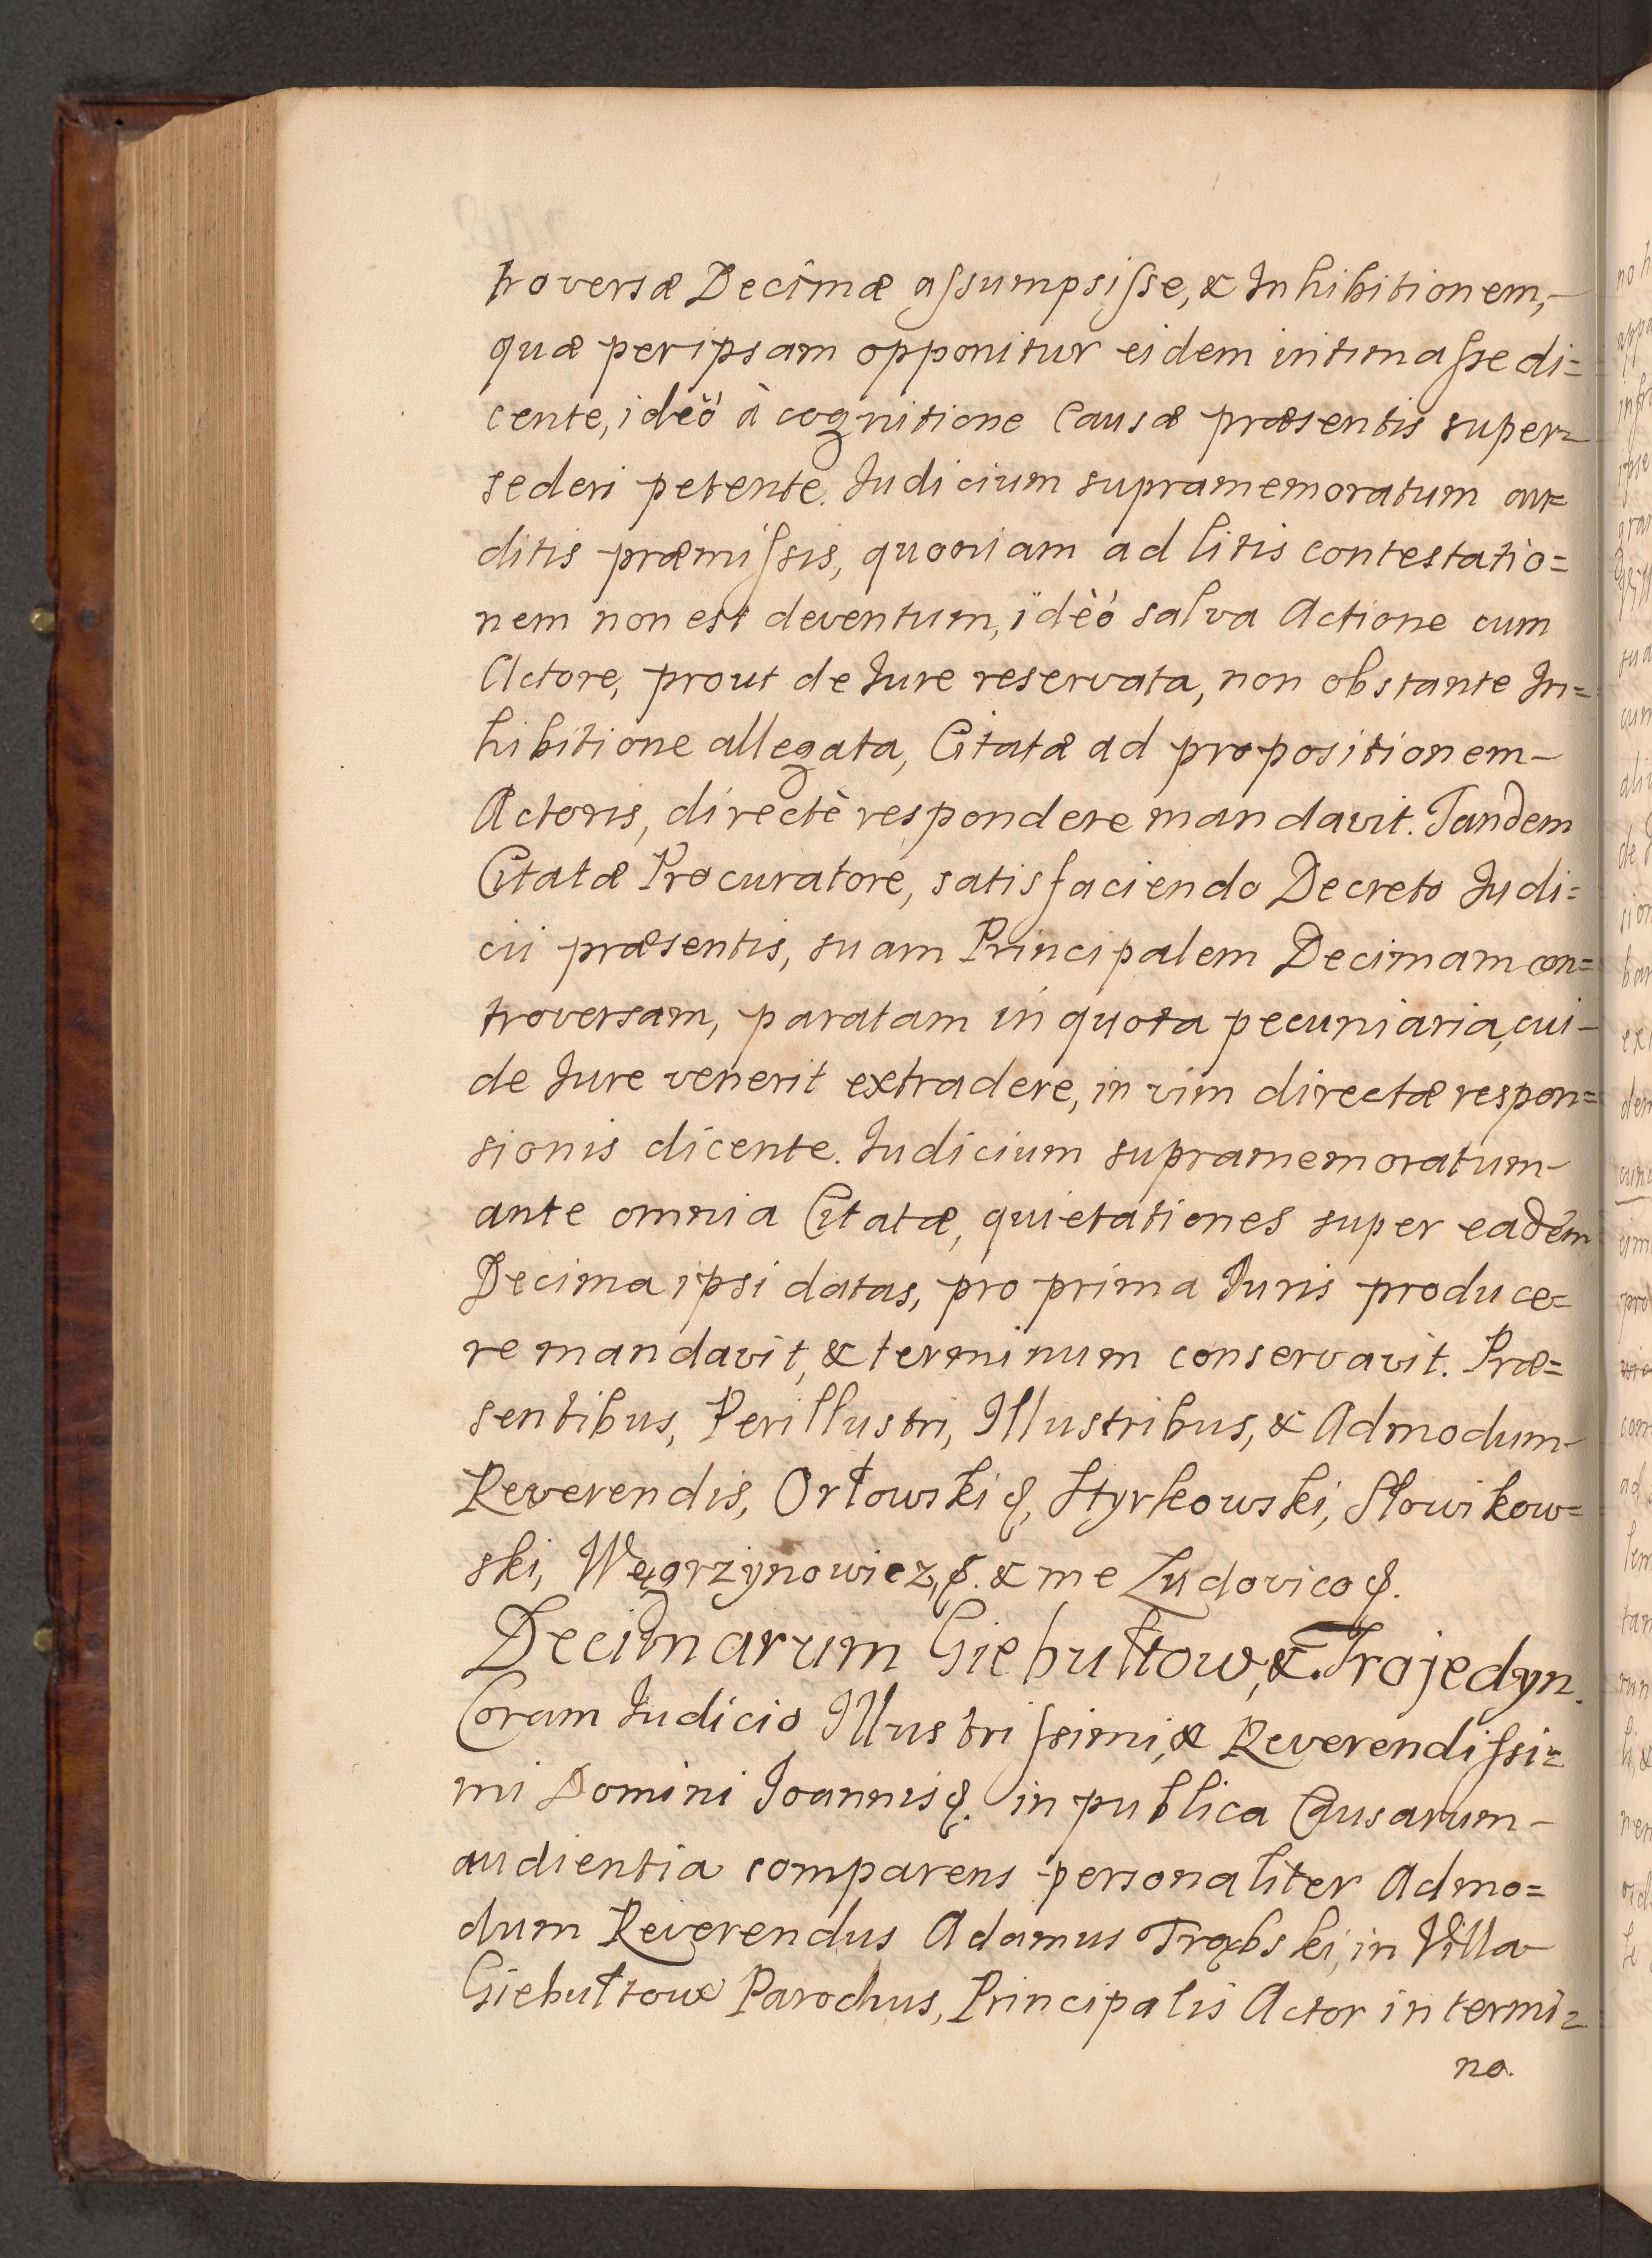 troversæ Decimæ aſsumpsiſse, & Inhibitionem,-
quæ per ipsam opponitur eidem intimaſse di=
cente, ideò à cognitione Causæ præsentis super=
sederi petente. Iudicium supramemoratum au=
ditis præmiſsis, quoniam ad litis contestatio=
nem non est deventum, ideò salva Actione cum
Actore, prout de Iure reservata, non obstante In=
hibitione allegata, Citatæ ad propositionem-
Actoris, directè respondere mandavit. Tandem
Citatæ Procuratore, satisfaciendo Decreto Iudi=
cii præsentis, suam Principalem Decimam con=
troversam, paratam in quota pecuniaria, cui-
de Iure venerit extradere, in vim directæ respon=
sionis dicente. Iudicium supramemoratum-
ante omnia Citatæ, quietationes super eadem
Decima ipsi datas, pro prima Iuris produce=
re mandavit, & terminum conservavit. Præ=
sentibus, Perillustri, Illustribus, & Admodum-
Reverendis, Orłowski &, Styrkowski, Słowikow=
ski, Węgrzynowicz, &. & me Ludovico &.
Decimarum Giebułtow, & Trojedyn.
Coram Iudicio Illustriſsimi, & Reverendiſsi=
mi Domini Ioannis &. in publica Causarum-
audientia comparens personaliter Admo=
dum Reverendus Adamus Trąbski, in Villa
Giebułtow Parochus, Principalis Actor in termi=
no.